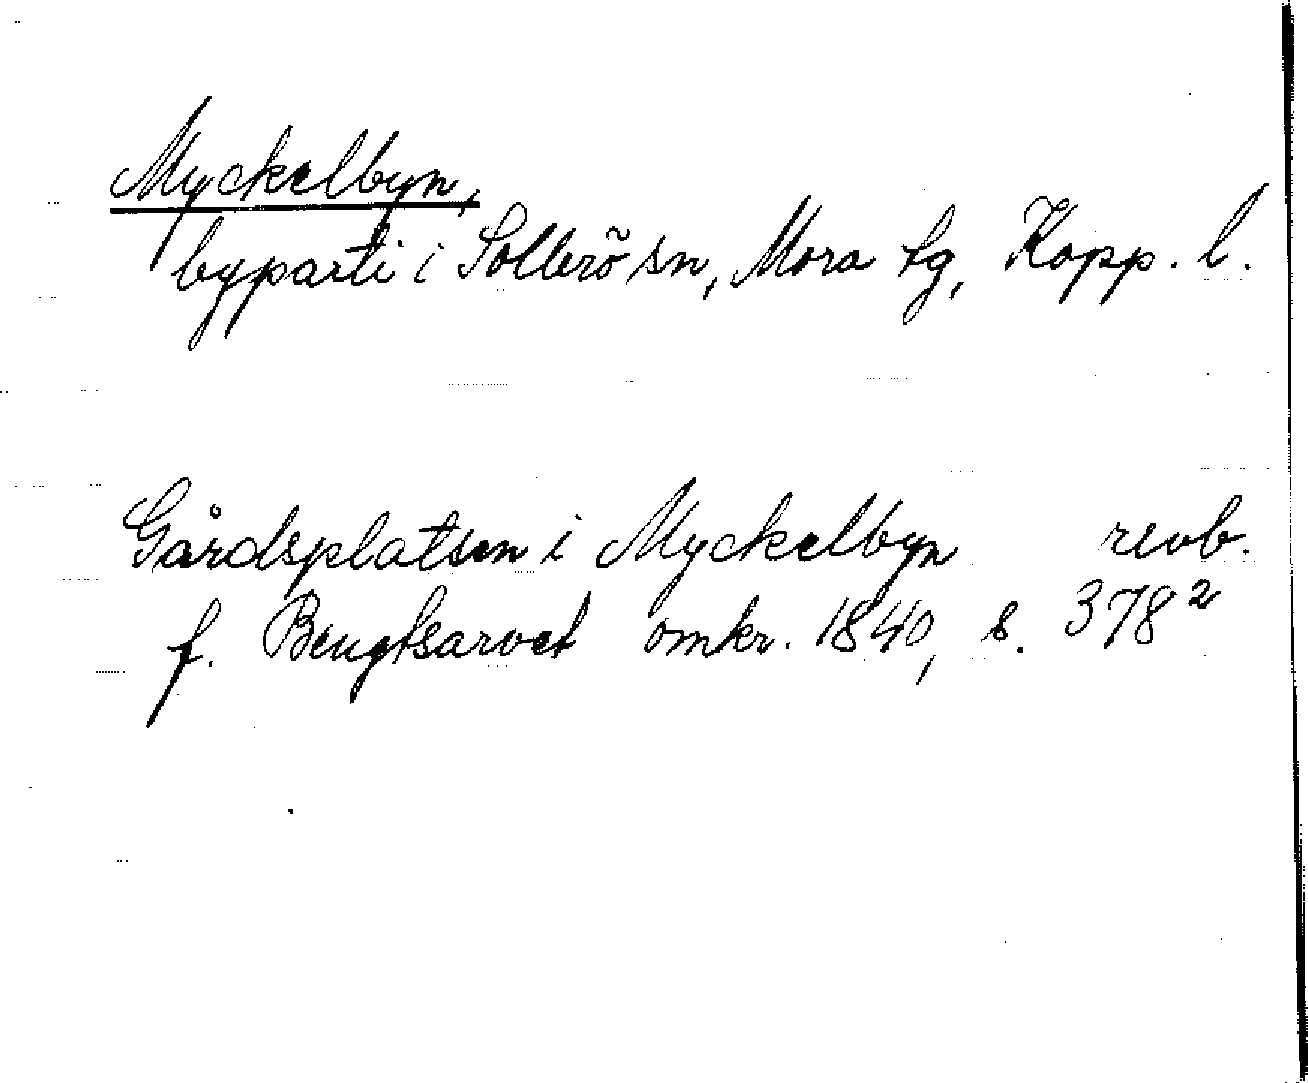 Myckelbyn,
byparti i Sollerö sn, Mora tg, Kopp. l.
Gårdsplatsen i Myckelbyn revb.
f. Bengtsarvet omkr. 1840, s. 378²